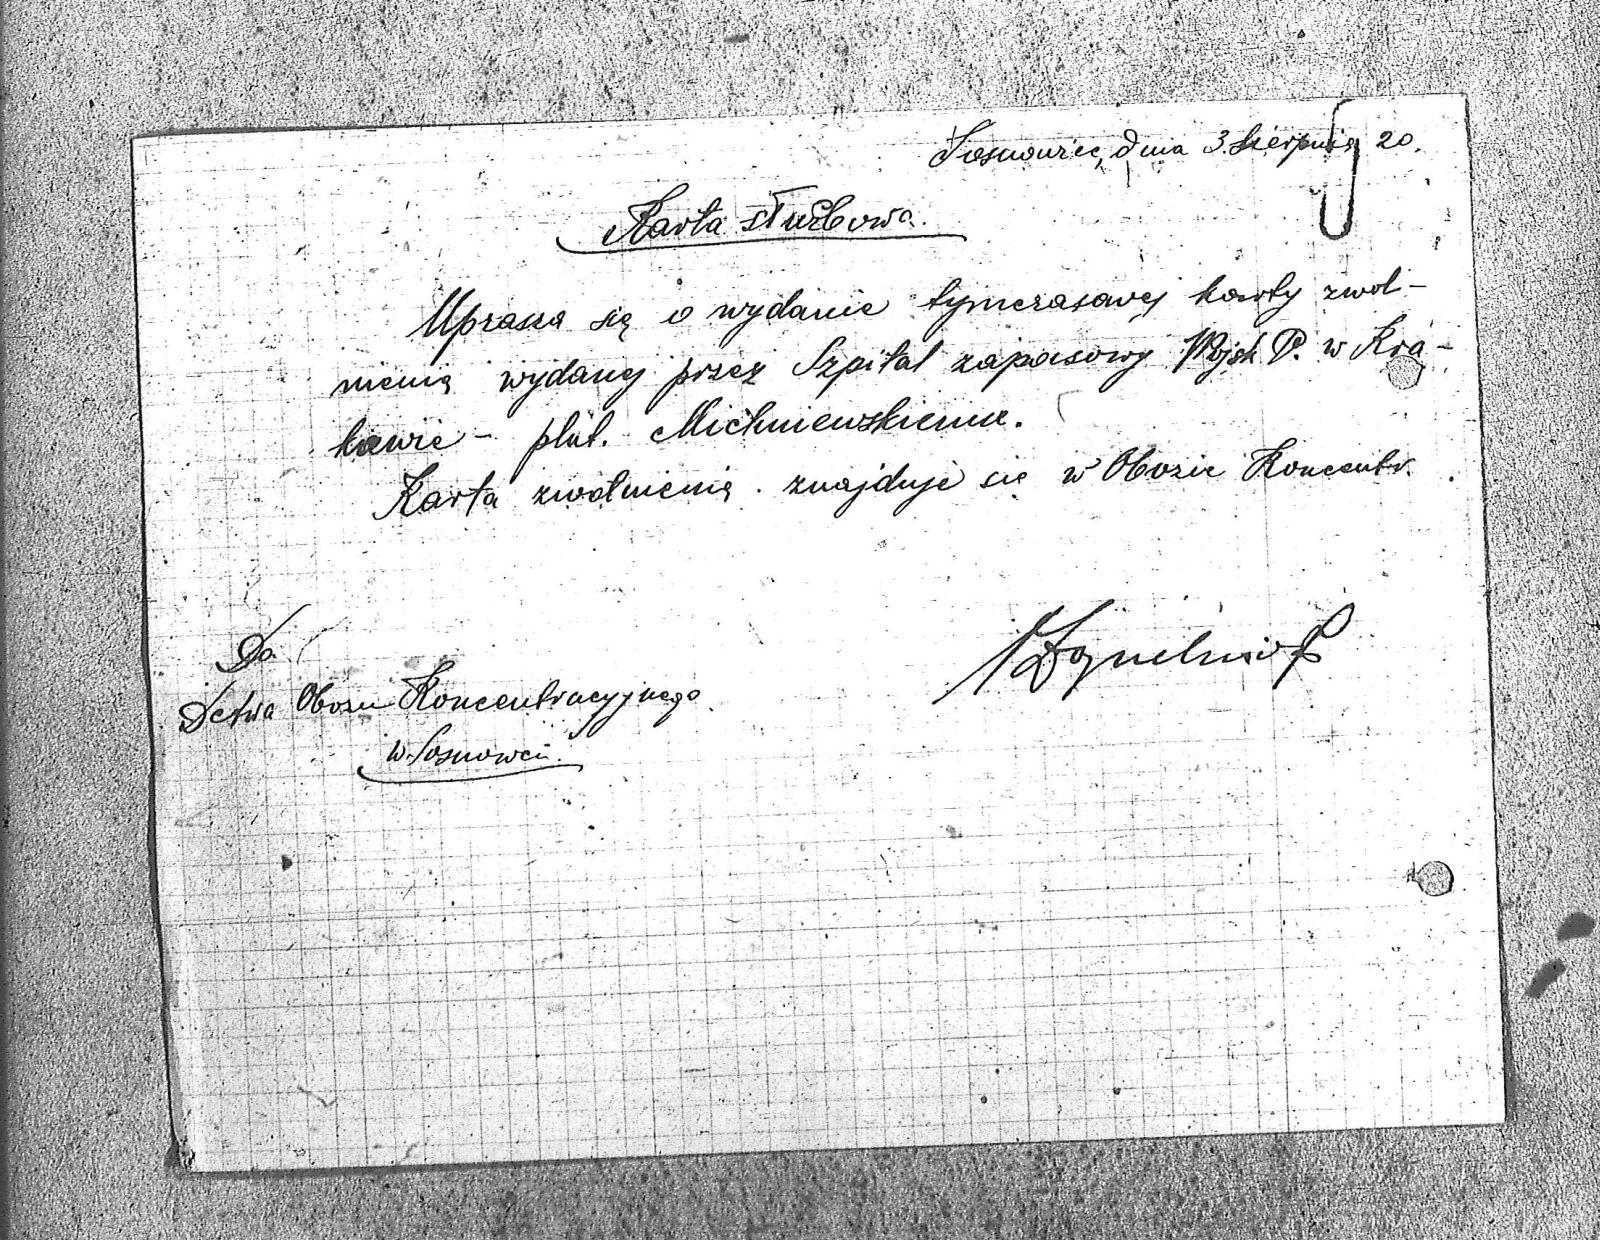 Sosnowiec, dnia 3. Sierpnia 20.
Karta służbowa.
Uprasza się o wydanie tymczasowej karty zwol-
nienia wydanej przez Szpital zapasowy Wojsk P. w Kra-
kowie - plut. Michniewskiemu.
Karta zwolnienia znajduje się w Obozie Koncentr.
Do
Dctwa Obozu Koncentracyjnego
w Sosnowcu.